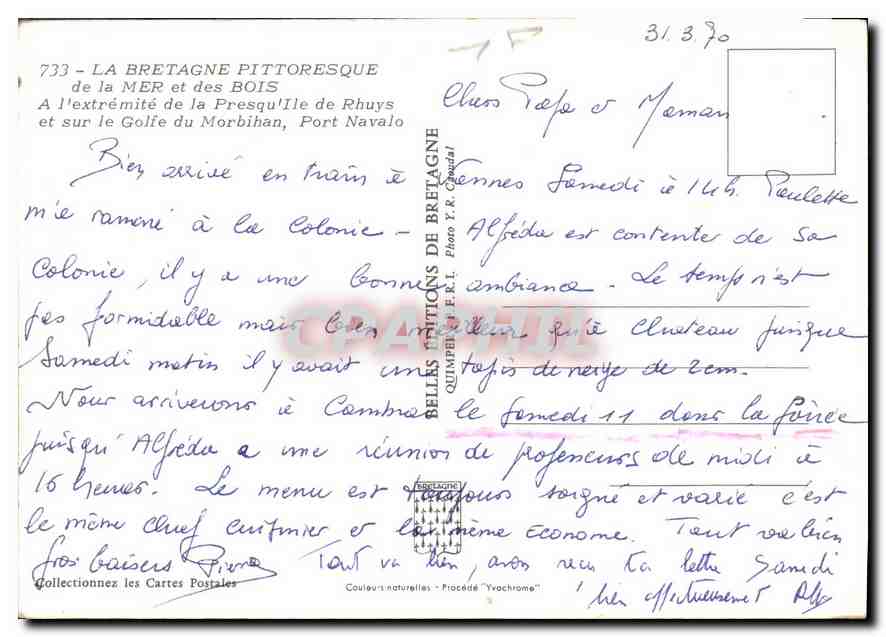 31.3.70
733 - LA BRETAGNE PITTORESQUE
de la MER et des BOIS
A l'extrémité de la Presqu'Ile de Rhuys
et sur le Golfe du Morbihan, Port Navalo
Chers Papa et Maman
Bien arrivé en train à Vannes Samedi à 14h. Paulette
m'a ramené à la Colonie - Alfréda est contente de sa
Colonie, il y a une bonne ambiance. Le temps n'est
pas formidable mais bien meilleur qu'à Chateau puisque
Samedi matin il y avait un tapis de neige de 2cm.
Nous arriverons à Cambrai le Samedi 11 dans la soirée
puisqu'Alfréda a une réunion de professeurs de midi à
16 heures. Le menu est toujours soigné et varié c'est
le même chef cuisinier et la même Econome. Tout va bien
Gros baisers Pierre
Tout va bien, avons recu ta lettre Samedi
bien affectueusement
BELLES EDITIONS DE BRETAGNE
QUIMPER J.F.R.I. Photo Y. R. Caoudal
CPAPHIL
BRETAGNE
Collectionnez les Cartes Postales
Couleurs naturelles - Procédé "Yvachrome"